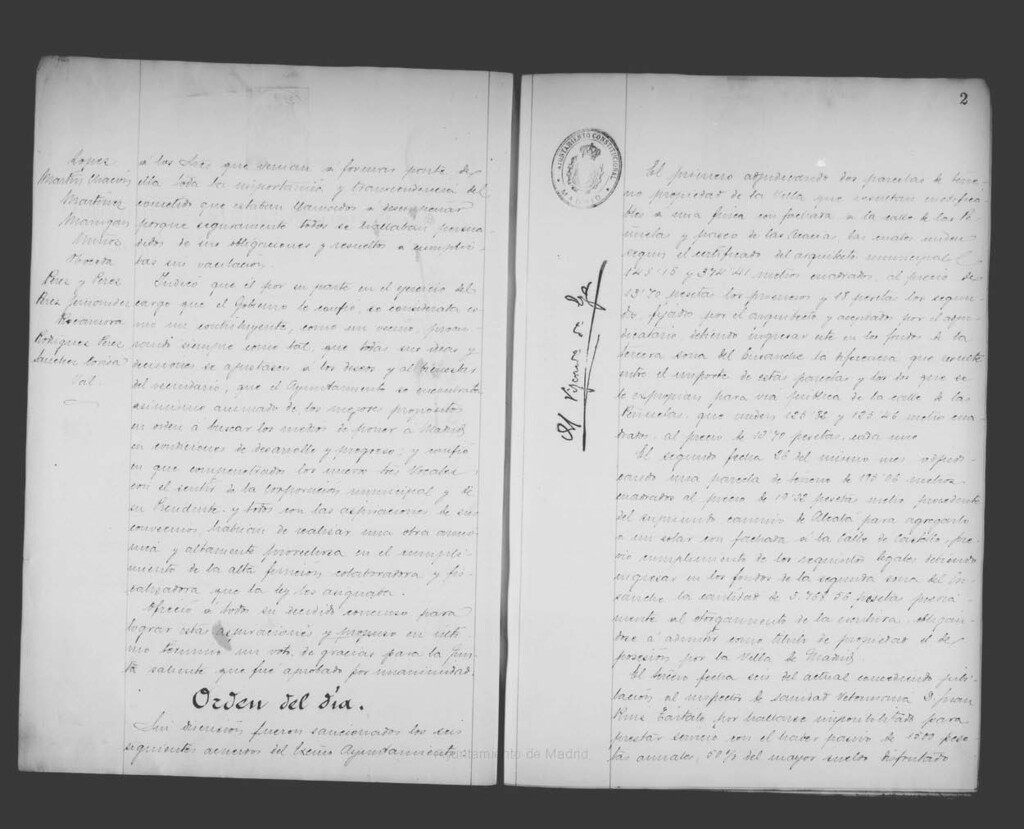 Lopez
Martin Chacon
Martinez
Marugan
Muñoz
Noceda
Perez y Perez
Perez Fernandez
Rocamora
Rodriguez Perez
Sanchez
tal.
a los Sres que venian a formar parte de
ella toda la importancia y transcendencia del
cometido que estaban llamados a desempeñar
porque seguramente todos se hallaban persua
didos de sus obligaciones y resueltos a cumplir
las sin vacilacion.
Indicó que el por su parte en el ejercicio del
cargo que el Gobierno le confió, se consideraba co
mo un contribuyente, como un vecino, procu
rando siempre como tal, que todas sus ideas y
decisiones se ajustasen a los deseos y al bienestar
del vecindario; que el Ayuntamiento se encontraba
asimismo animado de los mejores propósitos
en orden a buscar los medios de poner a Madrid
en condiciones de desarrollo y progreso; y confió
en que compenetrados los nuevos Sres Vocales
con el sentir de la corporación municipal y de
su Presidente y todos con las aspiraciones de sus
convecinos, habrian de realizar una obra armó
nica y altamente provechosa en el cumpli
miento de la alta función colaboradora y fis
calizadora que la ley les asignaba.
Ofreció a todos su decidido concurso para
lograr estas aspiraciones y propuso en ulti
mo termino un voto de gracias para la Jun
ta saliente que fué aprobado por unanimidad.
Orden del día.
Sin discusión fueron sancionados los seis
siguientes acuerdos del Excmo Ayuntamiento
2
AYUNTAMIENTO CONSTITUCIONAL
MADRID
El Vizconde de Eza
El primero adjudicando dos parcelas de terre
no propiedad de la Villa que resultan inedifica
bles a una finca con fachada a la calle de las Pe
ñuelas y paseo de las Acacias las cuales miden
segun el certificado del arquitecto municipal
125'15 y 372'41 metros cuadrados, al precio de
13'70 pesetas los primeros y 18 pesetas los segun
dos, fijado por el arquitecto y aceptado por el adju
dicatario, debiendo ingresar este en los fondos de la
tercera zona del Ensanche la diferencia que resulte
entre el importe de estas parcelas y las dos que se
le expropian para via publica de la calle de las
Peñuelas, que miden 125'82 y 125'46 metros cua
drados, al precio de 13'70 pesetas, cada uno.
El segundo fecha 26 del mismo mes adjudi
cando una parcela de terreno de metros
cuadrados al precio de 19'32 pesetas metro procedente
del suprimido camino de Alcalá para agregarlo
a un solar con fachada a la calle de Castelló, pre
vio cumplimiento de los requisitos legales debiendo
ingresar en los fondos de la segunda zona del En
sanche la cantidad de 3.768'56 pesetas previa
mente al otorgamiento de la escritura, obligan
dose a admitir como titulo de propiedad el de
posesión por la Villa de Madrid.
El tercero fecha seis del actual concediendo jubi
lación al inspector de sanidad veterinaria D. Juan
Ruiz por hallarse imposibilitado para
prestar servicio con el haber pasivo de 1500 pese
tas anuales, 50% del mayor sueldo disfrutado
Ayuntamiento de Madrid